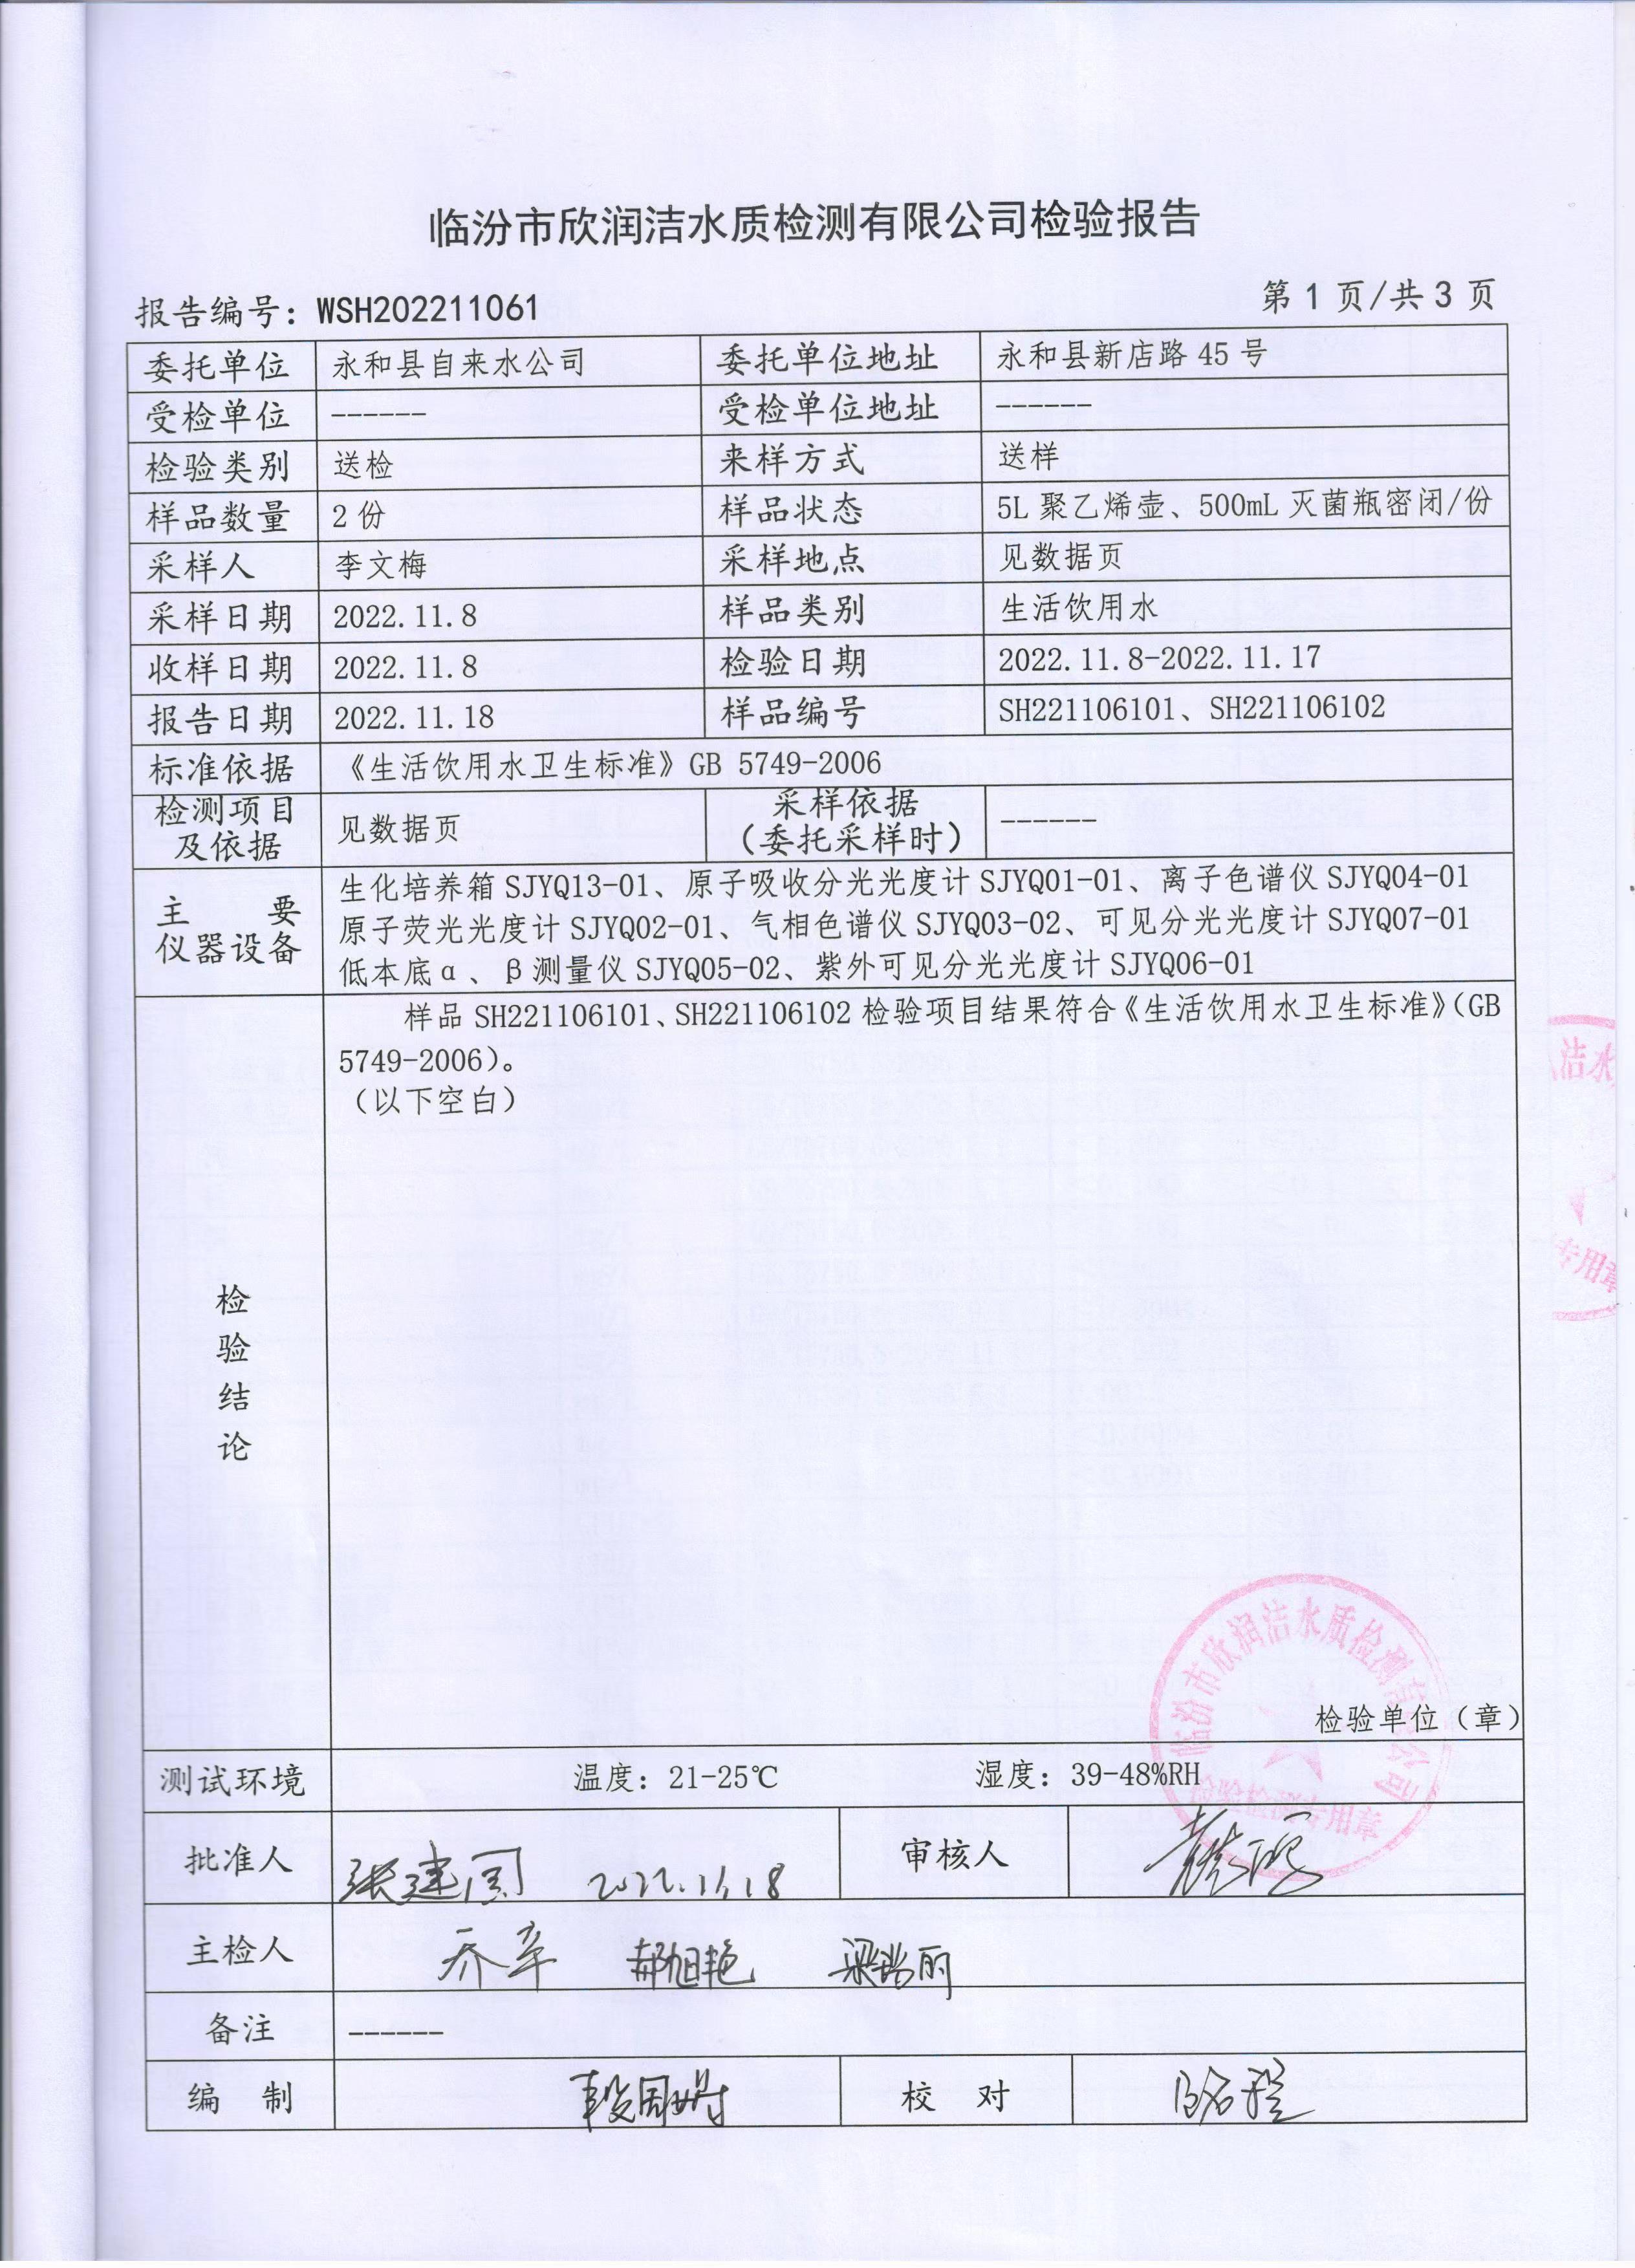 临汾市欣润洁水质检测有限公司检验报告
报告编号：WSH202211061
第 1 页/共 3 页
委托单位 永和县自来水公司 委托单位地址 永和县新店路 45 号
受检单位 ------ 受检单位地址 ------
检验类别 送检 来样方式 送样
样品数量 2 份 样品状态 5L 聚乙烯壶、500mL 灭菌瓶密闭/份
采样人 李文梅 采样地点 见数据页
采样日期 2022.11.8 样品类别 生活饮用水
收样日期 2022.11.8 检验日期 2022.11.8-2022.11.17
报告日期 2022.11.18 样品编号 SH221106101、SH221106102
标准依据 《生活饮用水卫生标准》GB 5749-2006
检测项目及依据 见数据页 采样依据（委托采样时） ------
主要仪器设备
生化培养箱 SJYQ13-01、原子吸收分光光度计 SJYQ01-01、离子色谱仪 SJYQ04-01
原子荧光光度计 SJYQ02-01、气相色谱仪 SJYQ03-02、可见分光光度计 SJYQ07-01
低本底α、β测量仪 SJYQ05-02、紫外可见分光光度计 SJYQ06-01
检验结论
样品 SH221106101、SH221106102 检验项目结果符合《生活饮用水卫生标准》（GB
5749-2006）。
（以下空白）
洁水
专用章
临汾市欣润洁水质检测有限公司
检验检测专用章
检验单位（章）
测试环境 温度：21-25℃ 湿度：39-48%RH
批准人 张建国 2022.11.18 审核人
主检人 乔辛 郝旭艳 梁瑞丽
备注 ------
编 制 校 对